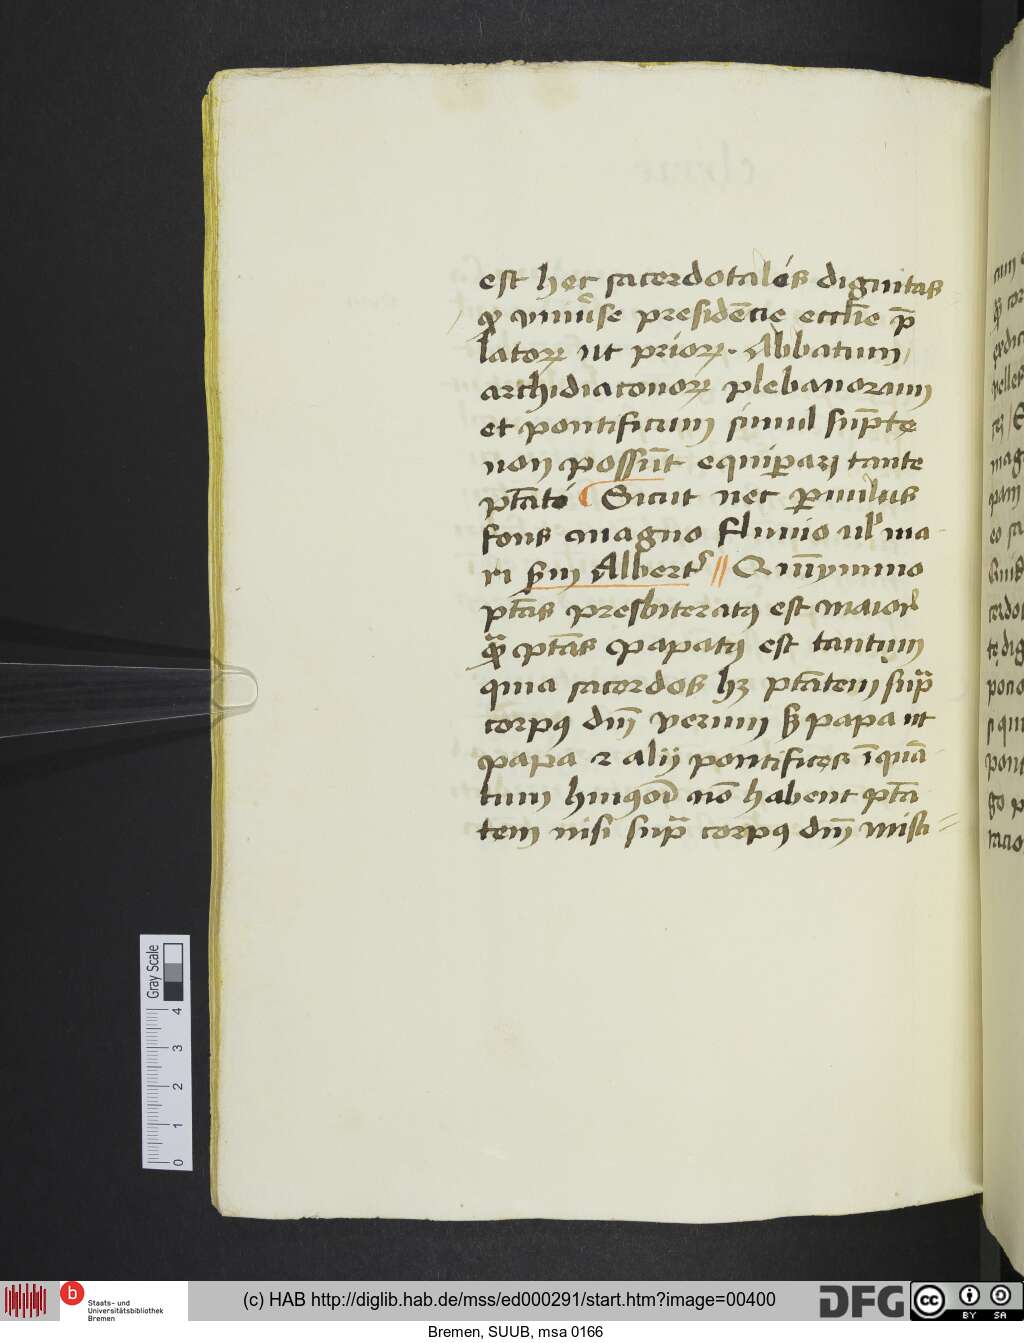 est hec sacerdotales dignitas
ꝙ vniu̅se preside̅cie eccl̅ie p̅
latoꝝ ut prioꝝ. Abbatum
archidiaconoꝝ plebanorum
et pontificum simul su̅pte
non possu̅t equiꝑari tante
pt̅ati Sicut nec ꝑuulus
fons magno fluuio ul' ma-
ri s̅m Albert'
pt̅as presbiteratꝰ est maior
qua̅ pt̅as papatꝰ est tantum
quia sacerdos hꝫ pt̅atem sup̅
corpꝰ dn̅i verum sꝫ papa ut
papa ⁊ alij pontifices i̅qua̅
tum hmꝰoi̅ no̅ habent pt̅a
tem nisi sup̅ corpꝰ dn̅i misti
Gray Scale
0 1 2 3 4
b
Staats- und
Universitätsbibliothek
Bremen
(c) HAB http://diglib.hab.de/mss/ed000291/start.htm?image=00400
DFG
cc BY SA
Bremen, SUUB, msa 0166